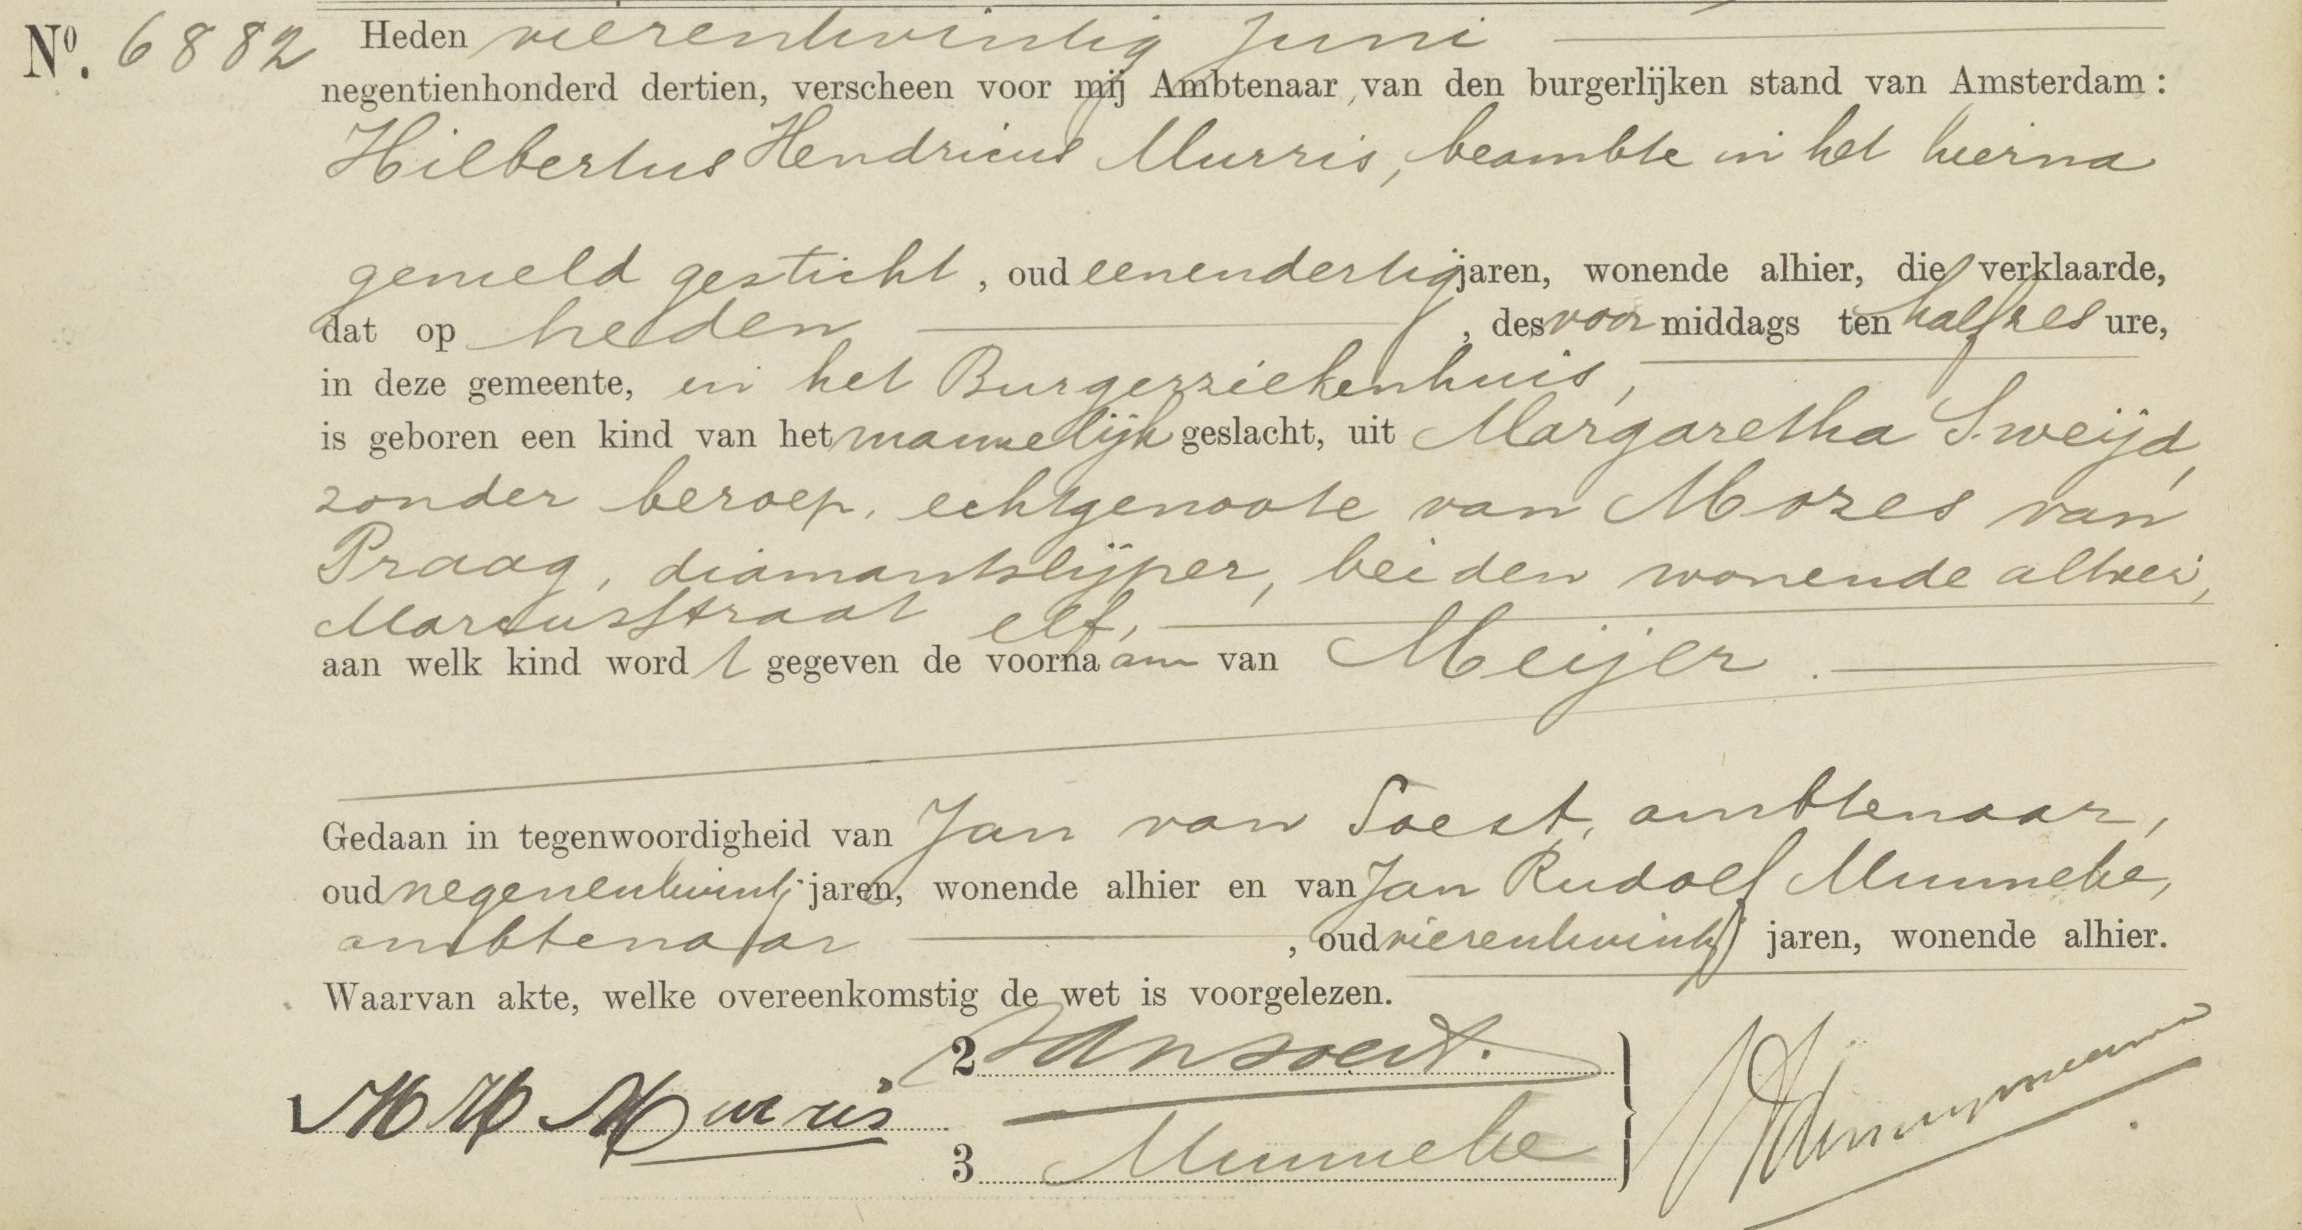 No. 6882 Heden vierentwintig Juni
negentienhonderd dertien, verscheen voor mij Ambtenaar van den burgerlijken stand van Amsterdam:
Hilbertus Hendricus Murris, beambte in het hierna
gemeld gesticht, oud eenendertig jaren, wonende alhier, die verklaarde,
dat op heden, des voor middags ten half zes ure,
in deze gemeente, in het Burgerziekenhuis,
is geboren een kind van het mannelijk geslacht, uit Margaretha Sweijd,
zonder beroep, echtgenoote van Mozes van
Praag, diamantslijper, beiden wonende alhier,
Marcusstraat elf,
aan welk kind wordt gegeven de voornaam van Meijer.
Gedaan in tegenwoordigheid van Jan van Soest, ambtenaar,
oud negenentwintig jaren, wonende alhier en van Jan Rudolf Munneke,
ambtenaar, oud vierentwintig jaren, wonende alhier.
Waarvan akte, welke overeenkomstig de wet is voorgelezen.
1 HH Murris
2 Van Soest.
3 Munneke